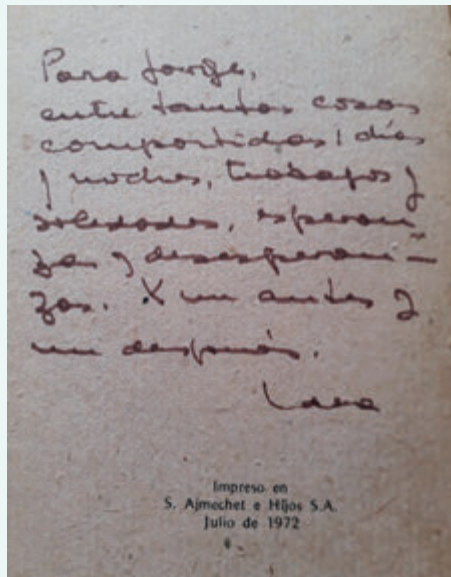 Para Jorge,
entre tantas cosas
compartidas, días
y noches, trabajos y
soledades, esperan-
zas y desesperan-
zas. Y un antes y
un después.
Impreso en
S. Ajmechet e Hijos S.A.
Julio de 1972